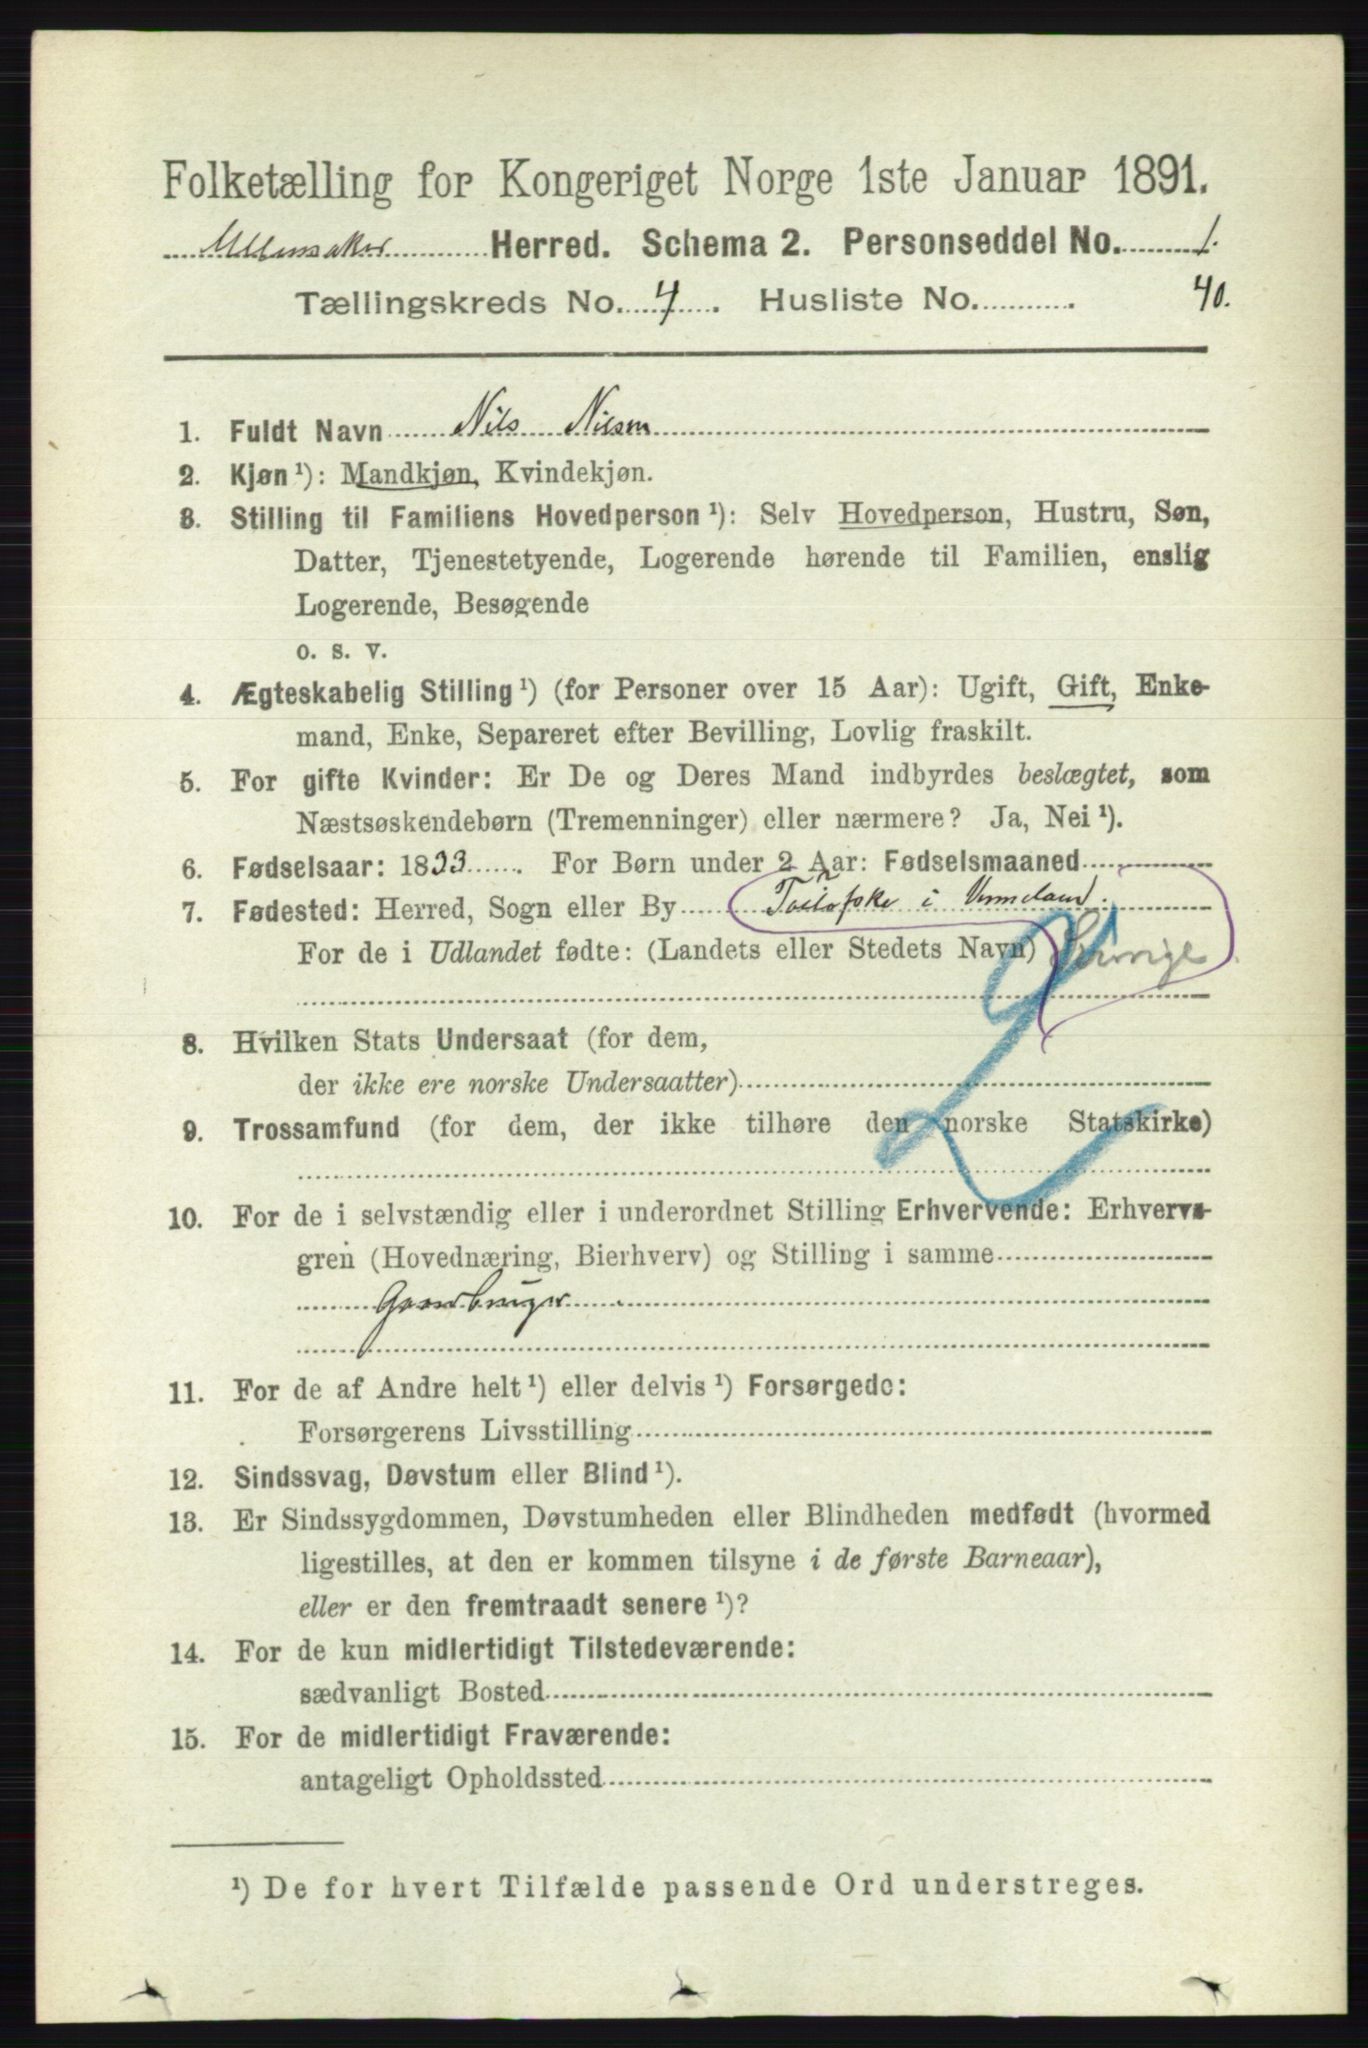 Folketælling for Kongeriget Norge 1ste Januar 1891.
Ullensaker Herred. Schema 2. Personseddel No. 1.
Tællingskreds No. 4. Husliste No. 40.
1. Fuldt Navn Nils Nilsen
2. Kjøn¹): Mandkjøn, Kvindekjøn.
3. Stilling til Familiens Hovedperson¹): Selv Hovedperson, Hustru, Søn,
Datter, Tjenestetyende, Logerende hørende til Familien, enslig
Logerende, Besøgende
o. s. v.
4. Ægteskabelig Stilling¹) (for Personer over 15 Aar): Ugift, Gift, Enke-
mand, Enke, Separeret efter Bevilling, Lovlig fraskilt.
5. For gifte Kvinder: Er De og Deres Mand indbyrdes beslægtet, som
Næstsøskendebørn (Tremenninger) eller nærmere? Ja, Nei¹).
6. Fødselsaar: 1833. For Børn under 2 Aar: Fødselsmaaned
7. Fødested: Herred, Sogn eller By i
For de i Udlandet fødte: (Landets eller Stedets Navn) Sverige
8. Hvilken Stats Undersaat (for dem,
der ikke ere norske Undersaatter)
9. Trossamfund (for dem, der ikke tilhøre den norske Statskirke)
10. For de i selvstændig eller i underordnet Stilling Erhvervende: Erhvervs-
gren (Hovednæring, Bierhverv) og Stilling i samme
Gaardbruger
11. For de af Andre helt¹) eller delvis¹) Forsørgede:
Forsørgerens Livsstilling
12. Sindssvag, Døvstum eller Blind¹).
13. Er Sindssygdommen, Døvstumheden eller Blindheden medfødt (hvormed
ligestilles, at den er kommen tilsyne i de første Barneaar),
eller er den fremtraadt senere¹)?
14. For de kun midlertidigt Tilstedeværende:
sædvanligt Bosted
15. For de midlertidigt Fraværende:
antageligt Opholdssted
¹) De for hvert Tilfælde passende Ord understreges.